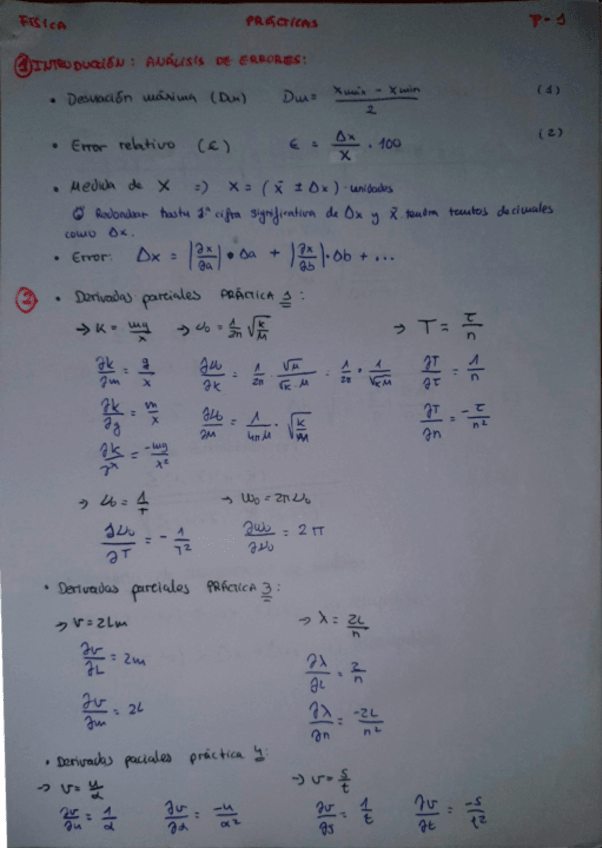 FÍSICA PRÁCTICAS P-1
① INTRODUCCIÓN: ANÁLISIS DE ERRORES:
• Desviación máxima (Dm) Dm = (xmáx - xmin)/2 (1)
• Error relativo (ε) ε = Δx/x · 100 (2)
• Medida de X => X = (x̄ ± Δx) · unidades
Redondear hasta 1ª cifra significativa de Δx y x̄ tendrá tantos decimales
como Δx.
• Error: Δx = |∂x/∂a| · Δa + |∂x/∂b| · Δb + ...
② • Derivadas parciales PRÁCTICA 1:
→ K = mg/x → υ₀ = 1/2π √(K/M) → T = τ/n
∂k/∂m = g/x ∂υ₀/∂k = 1/2π · √M/(√K · M) = 1/2π · 1/√KM ∂T/∂τ = 1/n
∂k/∂g = m/x ∂υ₀/∂M = 1/4πM · √(K/M) ∂T/∂n = -τ/n²
∂k/∂x = -mg/x²
→ υ₀ = 1/T → W₀ = 2πυ₀
∂υ₀/∂T = - 1/T² ∂w₀/∂υ₀ = 2π
• Derivadas parciales PRÁCTICA 3:
→ v = 2Lm → λ = 2L/n
∂v/∂L = 2m ∂λ/∂L = 2/n
∂v/∂m = 2L ∂λ/∂n = -2L/n²
• Derivadas paciales práctica 4:
→ v = u/α → v = s/t
∂v/∂u = 1/α ∂v/∂α = -u/α² ∂v/∂s = 1/t ∂v/∂t = -s/t²